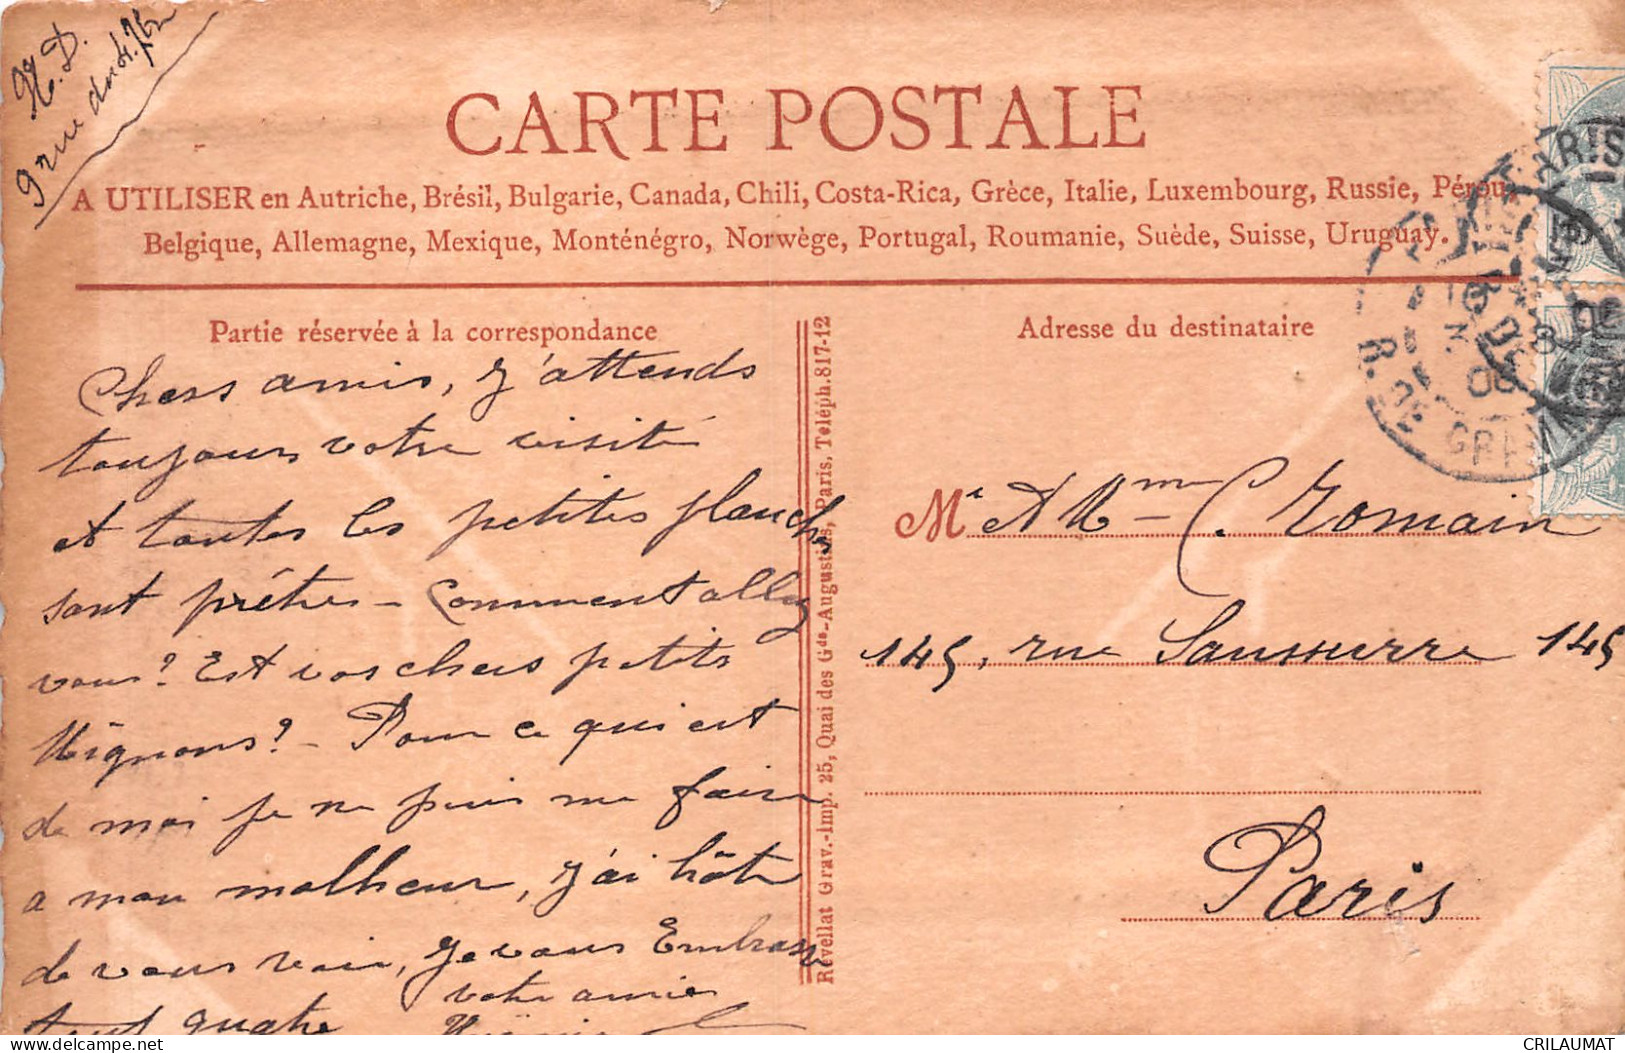 H. D.
9 rue du 4. 7bre
CARTE POSTALE
A UTILISER en Autriche, Brésil, Bulgarie, Canada, Chili, Costa-Rica, Grèce, Italie, Luxembourg, Russie, Pérou
Belgique, Allemagne, Mexique, Monténégro, Norwège, Portugal, Roumanie, Suède, Suisse, Uruguay.
Partie réservée à la correspondance
Chers amis, j'attends
toujours votre visite
et toutes les petites planches
sont prêtes - Comment allez
vous? Est vos chers petits
Mignons? - Pour ce qui est
de moi je ne puis me faire
a mon malheur, j'ai hâte
de vous voir, je vous Embrasse
tout quatre
votre amie
Revellat Grav.-Imp. 25, Quai des Gds-Augustins, Paris, Téléph. 817-12
Adresse du destinataire
Mr et Mme C. Romain
145, rue Saussurre 145
Paris
PARIS
R. DE GRE
delcampe.net
CRILAUMAT